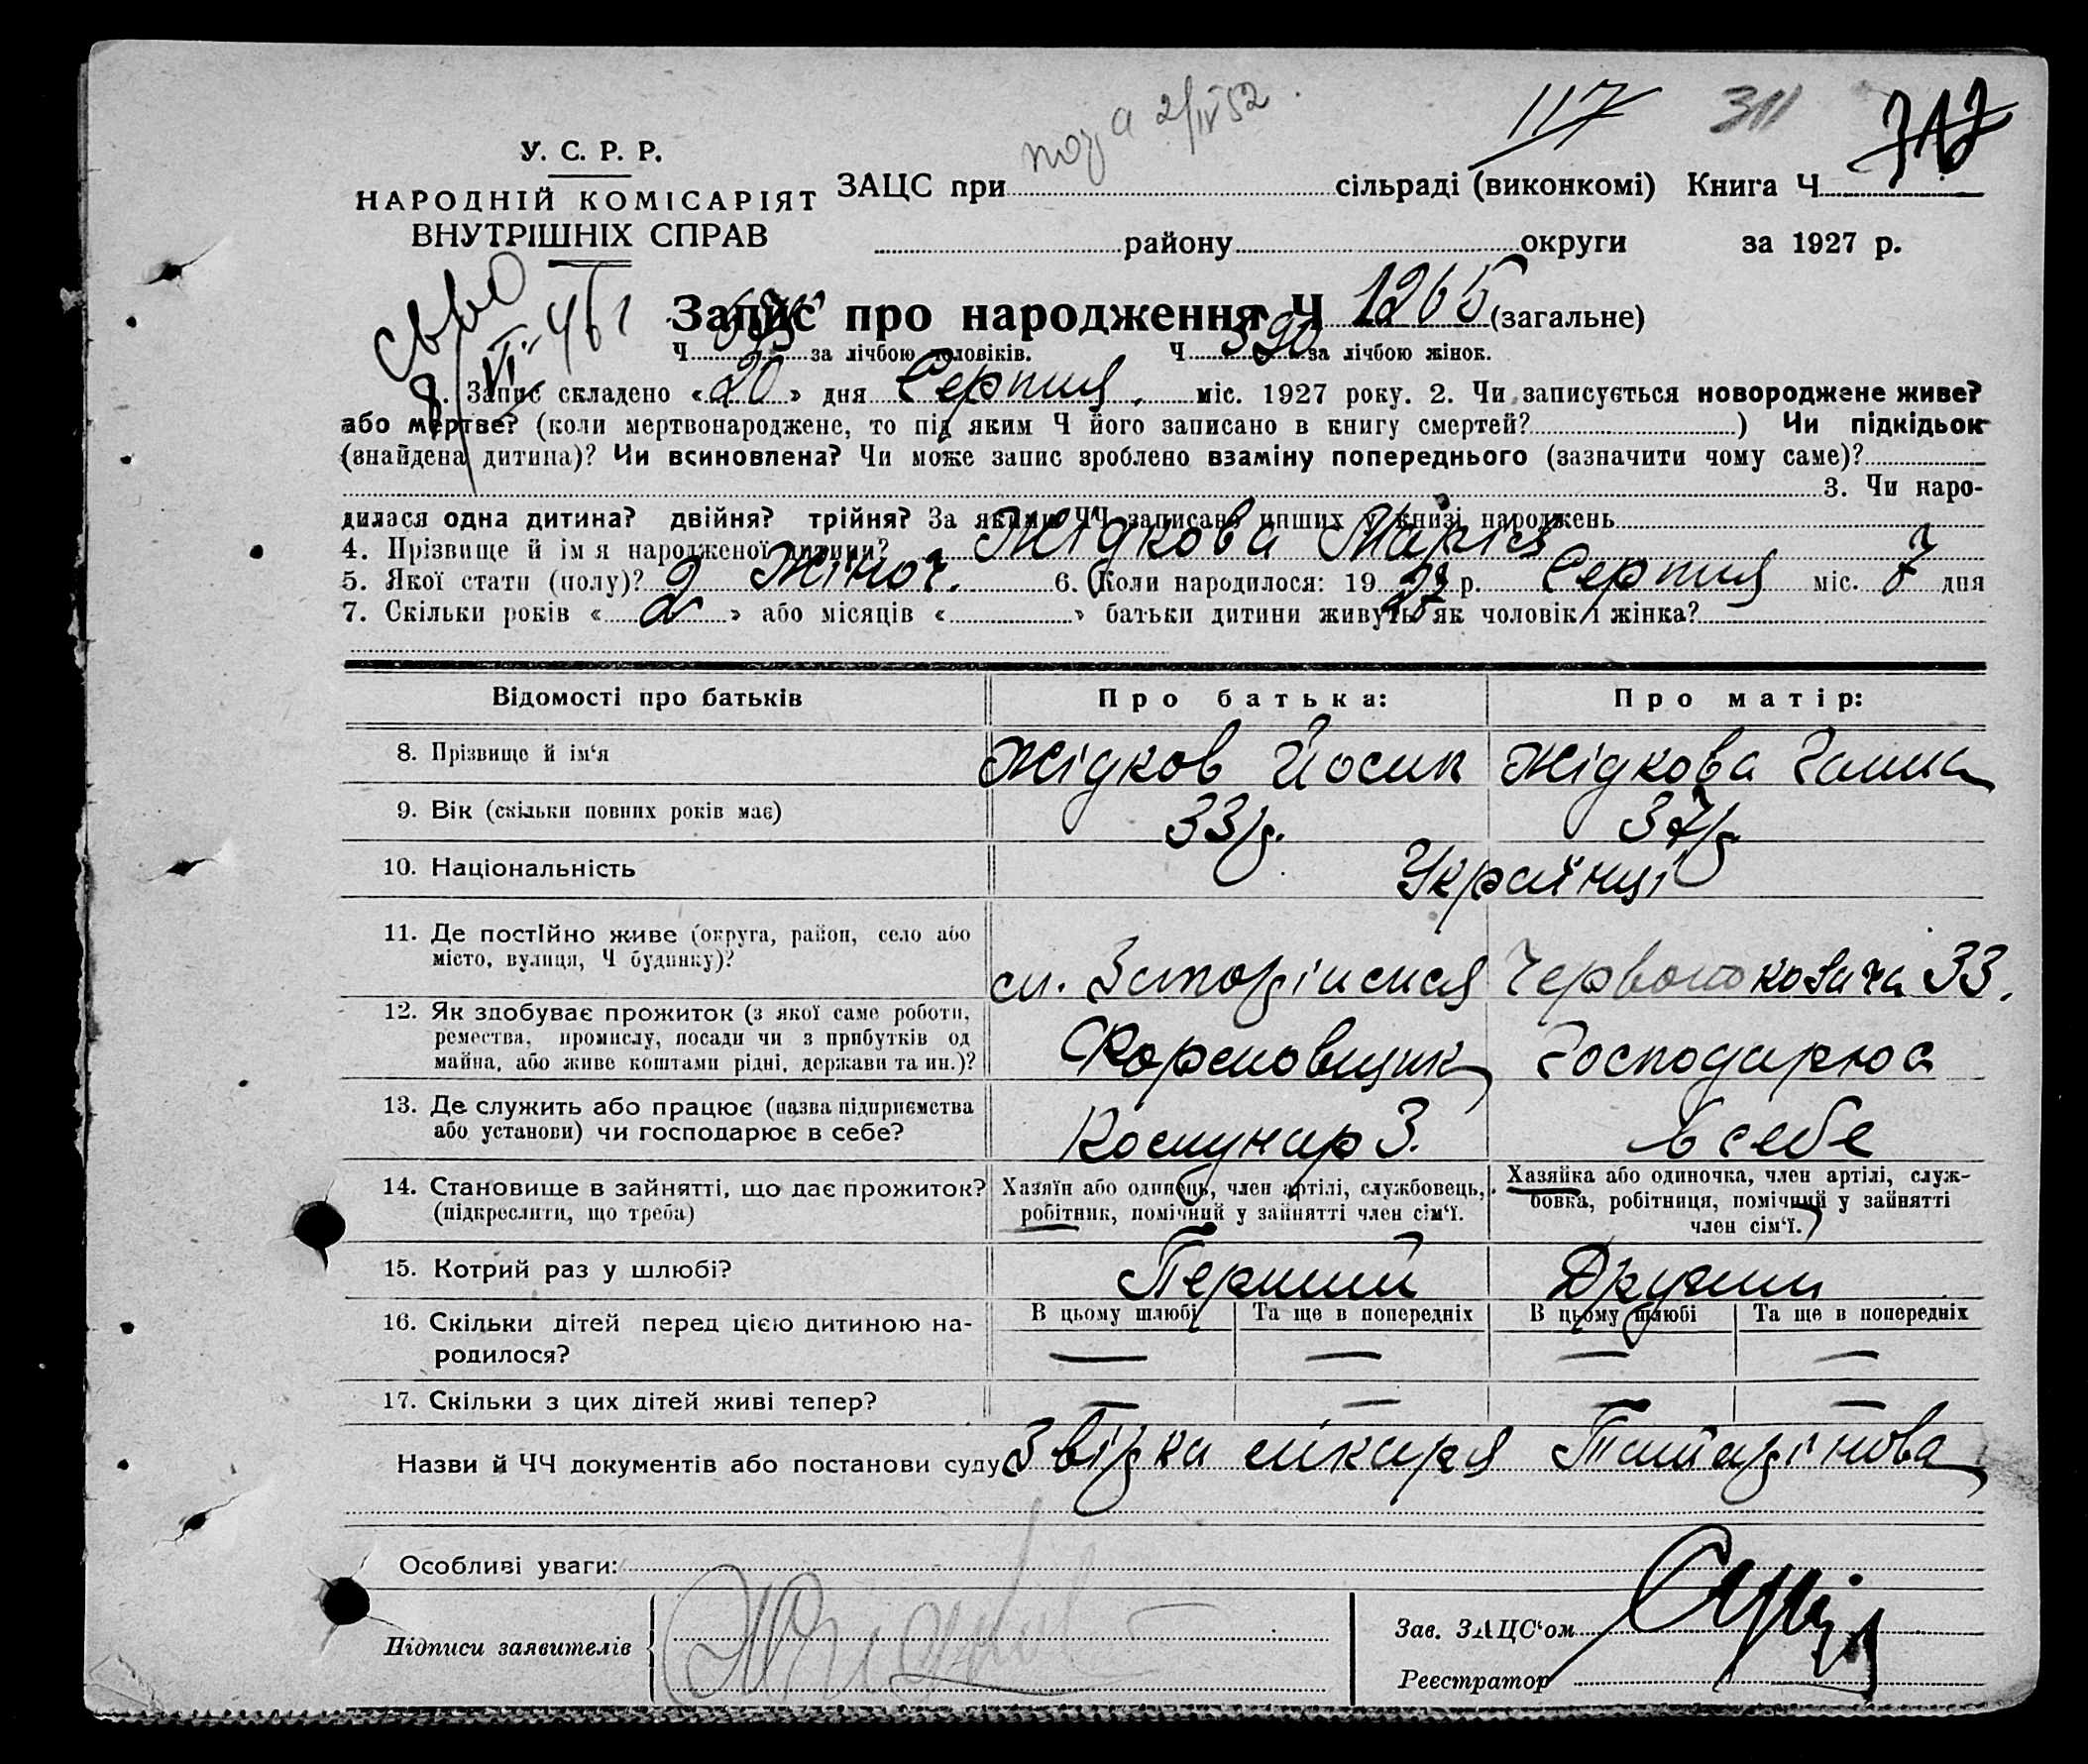 117 311
У. С. Р. Р.
НАРОДНІЙ КОМІСАРІЯТ
ВНУТРІШНІХ СПРАВ
ЗАЦС при сільраді (виконкомі) Книга Ч
району округи за 1927 р.
Запис про народження Ч 1265 (загальне)
Ч за лічбою чоловіків. Ч 590 за лічбою жінок.
1. Запис складено «20» дня Серпня міс. 1927 року. 2. Чи записується новороджене живе?
або мертве? (коли мертвонароджене, то під яким Ч його записано в книгу смертей?) Чи підкідьок
(знайдена дитина)? Чи всиновлена? Чи може запис зроблено взаміну попереднього (зазначити чому саме)?
3. Чи наро-
дилася одна дитина? двійня? трійня? За якими ЧЧ записано инших у книзі народжень
4. Прізвище й ім'я народженої дитини? Жідкова Марія
5. Якої стати (полу)? Жіноч. 6. Коли народилося: 19 27 р. Серпня міс. 7 дня
7. Скільки років «2» або місяців « » батьки дитини живуть як чоловік і жінка?
Відомості про батьків Про батька: Про матір:
8. Прізвище й ім'я Жідков Йосип Жідкова Ганна
9. Вік (скільки повних років має) 33 р. 37 р.
10. Національність Українці
11. Де постійно живе (округа, район, село або
місто, вулиця, Ч будинку)? Червонокозача 33.
12. Як здобуває прожиток (з якої саме роботи,
ремества, промислу, посади чи з прибутків од
майна, або живе коштами рідні, держави та ин.)? Формовщик Господарює
13. Де служить або працює (назва підприємства
або установи) чи господарює в себе? Комунар З. в себе
14. Становище в зайнятті, що дає прожиток?
(підкреслити, що треба)
Хазяїн або одинець, член артілі, службовець,
робітник, помічний у зайнятті член сім'ї.
Хазяйка або одиночка, член артілі, служ-
бовка, робітниця, помічний у зайнятті
член сім'ї.
15. Котрий раз у шлюбі? Перший Другий
16. Скільки дітей перед цією дитиною на-
родилося?
В цьому шлюбі Та ще в попередніх В цьому шлюбі Та ще в попередніх
— — — —
17. Скільки з цих дітей живі тепер? — — — —
Назви й ЧЧ документів або постанови суду лікаря
Особливі уваги:
Підписи заявителів Жидков
Зав. ЗАЦС'ом
Реєстратор